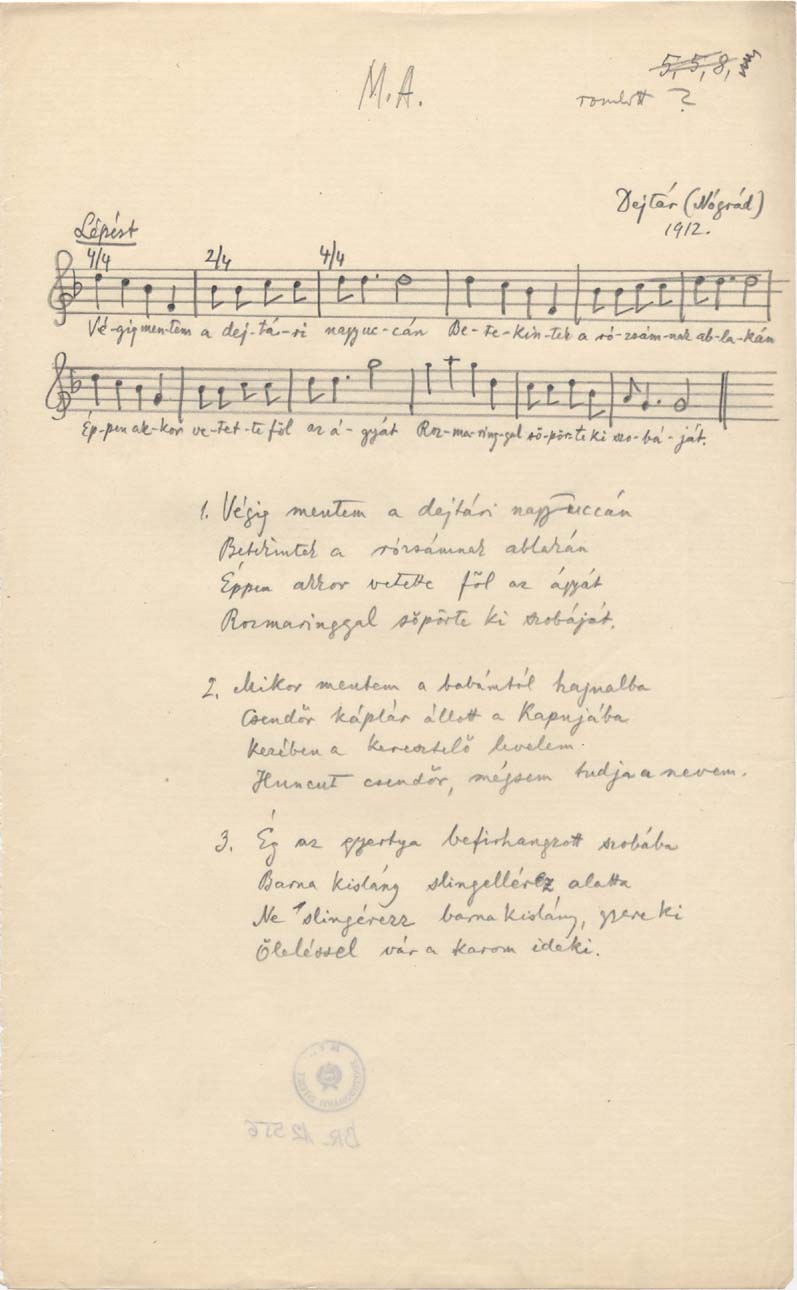 M.A.
5, 5, 8,
romlott ?
Dejtár (Nógrád)
1912.
Lépést
4/4 2/4 4/4
Vé-gig men-tem a dej-tá-ri nagyuc-cán Be-te-kin-tek a ró-zsám-nak ab-la-kán
Ép-pen ak-kor ve-tet-te föl az á-gyát Roz-ma-ring-gal söpör-te ki szo-bá-ját.
1. Végig mentem a dejtári nagy uccán
Betekintek a rózsámnak ablakán
Éppen akkor vetette föl az ágyát
Rozmaringgal söpörte ki szobáját.
2. Mikor mentem a babámtól hajnalba
Csendőr káplár állott a kapujába
Kezében a keresztelő levelem.
Huncut csendőr, mégsem tudja a nevem.
3. Ég az gyertya befirhangzott szobába
Barna kislány slingellérez alatta
Ne slingérezz barna kislány, gyere ki
Öleléssel vár a karom ideki.
BR. 12556